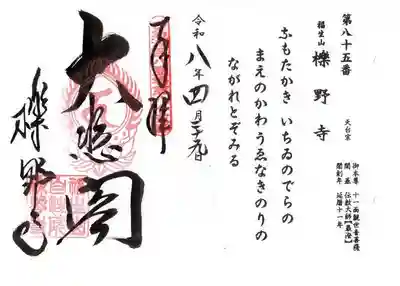 第八十五番
福生山 櫟野寺 天台宗
御本尊 十一面観世音菩薩
開基 伝教大師【最澄】
開創年 延暦十一年
ふもたかき いちゐのでらの
まえのかわうゑなきのりの
ながれとぞみる
令和八年四月二十九日
奉拝
大悲閣
櫟野寺